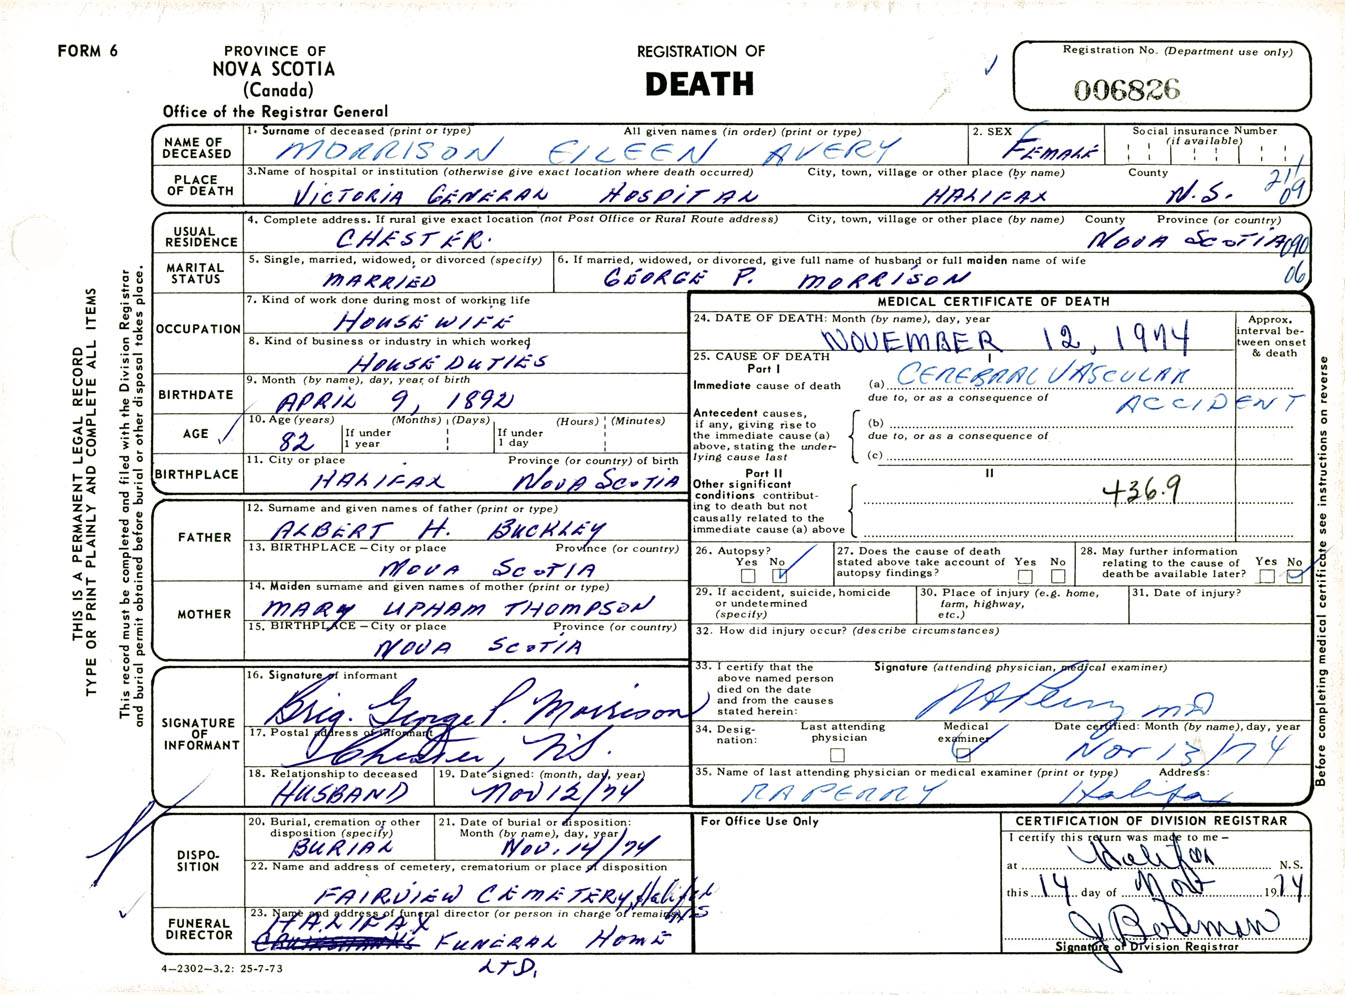 FORM 6
PROVINCE OF
NOVA SCOTIA
(Canada)
Office of the Registrar General
REGISTRATION OF
DEATH
Registration No. (Department use only)
006826
NAME OF DECEASED
1. Surname of deceased (print or type) All given names (in order) (print or type)
MORRISON EILEEN AVERY
2. SEX
FEMALE
Social insurance Number
(if available)
PLACE OF DEATH
3. Name of hospital or institution (otherwise give exact location where death occurred) City, town, village or other place (by name) County
VICTORIA GENERAL HOSPITAL HALIFAX N.S.
21/
09
USUAL RESIDENCE
4. Complete address. If rural give exact location (not Post Office or Rural Route address) City, town, village or other place (by name) County Province (or country)
CHESTER. NOVA SCOTIA
090
06
MARITAL STATUS
5. Single, married, widowed, or divorced (specify)
MARRIED
6. If married, widowed, or divorced, give full name of husband or full maiden name of wife
GEORGE P. MORRISON
OCCUPATION
7. Kind of work done during most of working life
HOUSEWIFE
8. Kind of business or industry in which worked
HOUSE DUTIES
BIRTHDATE
9. Month (by name), day, year of birth
APRIL 9, 1892
AGE
10. Age (years) (Months) (Days) (Hours) (Minutes)
82 If under 1 year If under 1 day
BIRTHPLACE
11. City or place Province (or country) of birth
HALIFAX NOVA SCOTIA
FATHER
12. Surname and given names of father (print or type)
ALBERT H. BUCKLEY
13. BIRTHPLACE – City or place Province (or country)
NOVA SCOTIA
MOTHER
14. Maiden surname and given names of mother (print or type)
MARY UPHAM THOMPSON
15. BIRTHPLACE – City or place Province (or country)
NOVA SCOTIA
SIGNATURE OF INFORMANT
16. Signature of informant
Brig. George P. Morrison
17. Postal address of informant
Chester, N.S.
18. Relationship to deceased
HUSBAND
19. Date signed: (month, day, year)
NOV 12/74
DISPO-
SITION
20. Burial, cremation or other disposition (specify)
BURIAL
21. Date of burial or disposition: Month (by name), day, year
NOV. 14/74
22. Name and address of cemetery, crematorium or place of disposition
FAIRVIEW CEMETERY, Halifax
NS
FUNERAL DIRECTOR
23. Name and address of funeral director (or person in charge of remains)
HALIFAX
FUNERAL HOME
LTD.
4–2302–3.2: 25-7-73
MEDICAL CERTIFICATE OF DEATH
24. DATE OF DEATH: Month (by name), day, year
NOVEMBER 12, 1974
Approx. interval be-
tween onset & death
25. CAUSE OF DEATH
Part I
I
Immediate cause of death (a) CEREBRAL VASCULAR
due to, or as a consequence of ACCIDENT
Antecedent causes, if any, giving rise to the immediate cause (a) above, stating the under-
lying cause last
(b)
due to, or as a consequence of
(c)
Part II
II
Other significant conditions contribut-
ing to death but not causally related to the immediate cause (a) above
436.9
26. Autopsy?
Yes No
27. Does the cause of death stated above take account of autopsy findings?
Yes No
28. May further information relating to the cause of death be available later?
Yes No
29. If accident, suicide, homicide or undetermined (specify)
30. Place of injury (e.g. home, farm, highway, etc.)
31. Date of injury?
32. How did injury occur? (describe circumstances)
33. I certify that the above named person died on the date and from the causes stated herein:
Signature (attending physician, medical examiner)
RAPerry MD
34. Desig-
nation:
Last attending physician
Medical examiner
Date certified: Month (by name), day, year
Nov 13/74
35. Name of last attending physician or medical examiner (print or type) Address:
RAPERRY Halifax
For Office Use Only
CERTIFICATION OF DIVISION REGISTRAR
I certify this return was made to me –
at Halifax N.S.
this 14 day of Nov 1974
Signature of Division Registrar
THIS IS A PERMANENT LEGAL RECORD
TYPE OR PRINT PLAINLY AND COMPLETE ALL ITEMS
This record must be completed and filed with the Division Registrar
and burial permit obtained before burial or other disposal takes place.
Before completing medical certificate see instructions on reverse